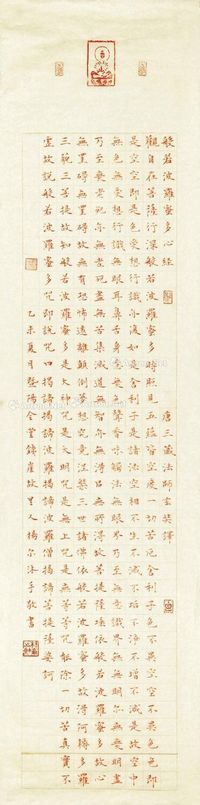 般若波羅蜜多心經 唐三藏法師玄奘譯
觀自在菩薩行深般若波羅蜜多時照見五蘊皆空度一切苦厄舍利子色不異空空不異色色即
是空空即是色受想行識亦復如是舍利子是諸法空相不生不滅不垢不淨不增不減是故空中
無色無受想行識無眼耳鼻舌身意無色聲香味觸法無眼界乃至無意識界無無明亦無無明盡
乃至無老死亦無老死盡無苦集滅道無智亦無得以無所得故菩提薩埵依般若波羅蜜多故心
無罣礙無罣礙故無有恐怖遠離顛倒夢想究竟涅槃三世諸佛依般若波羅蜜多故得阿耨多羅
三藐三菩提故知般若波羅蜜多是大神咒是大明咒是無上咒是無等等咒能除一切苦真實不
虛故說般若波羅蜜多咒即說咒曰揭諦揭諦波羅揭諦波羅僧揭諦菩提薩婆訶
乙未夏月暨陽全堂鐵崖故里人楊尔沐手敬書